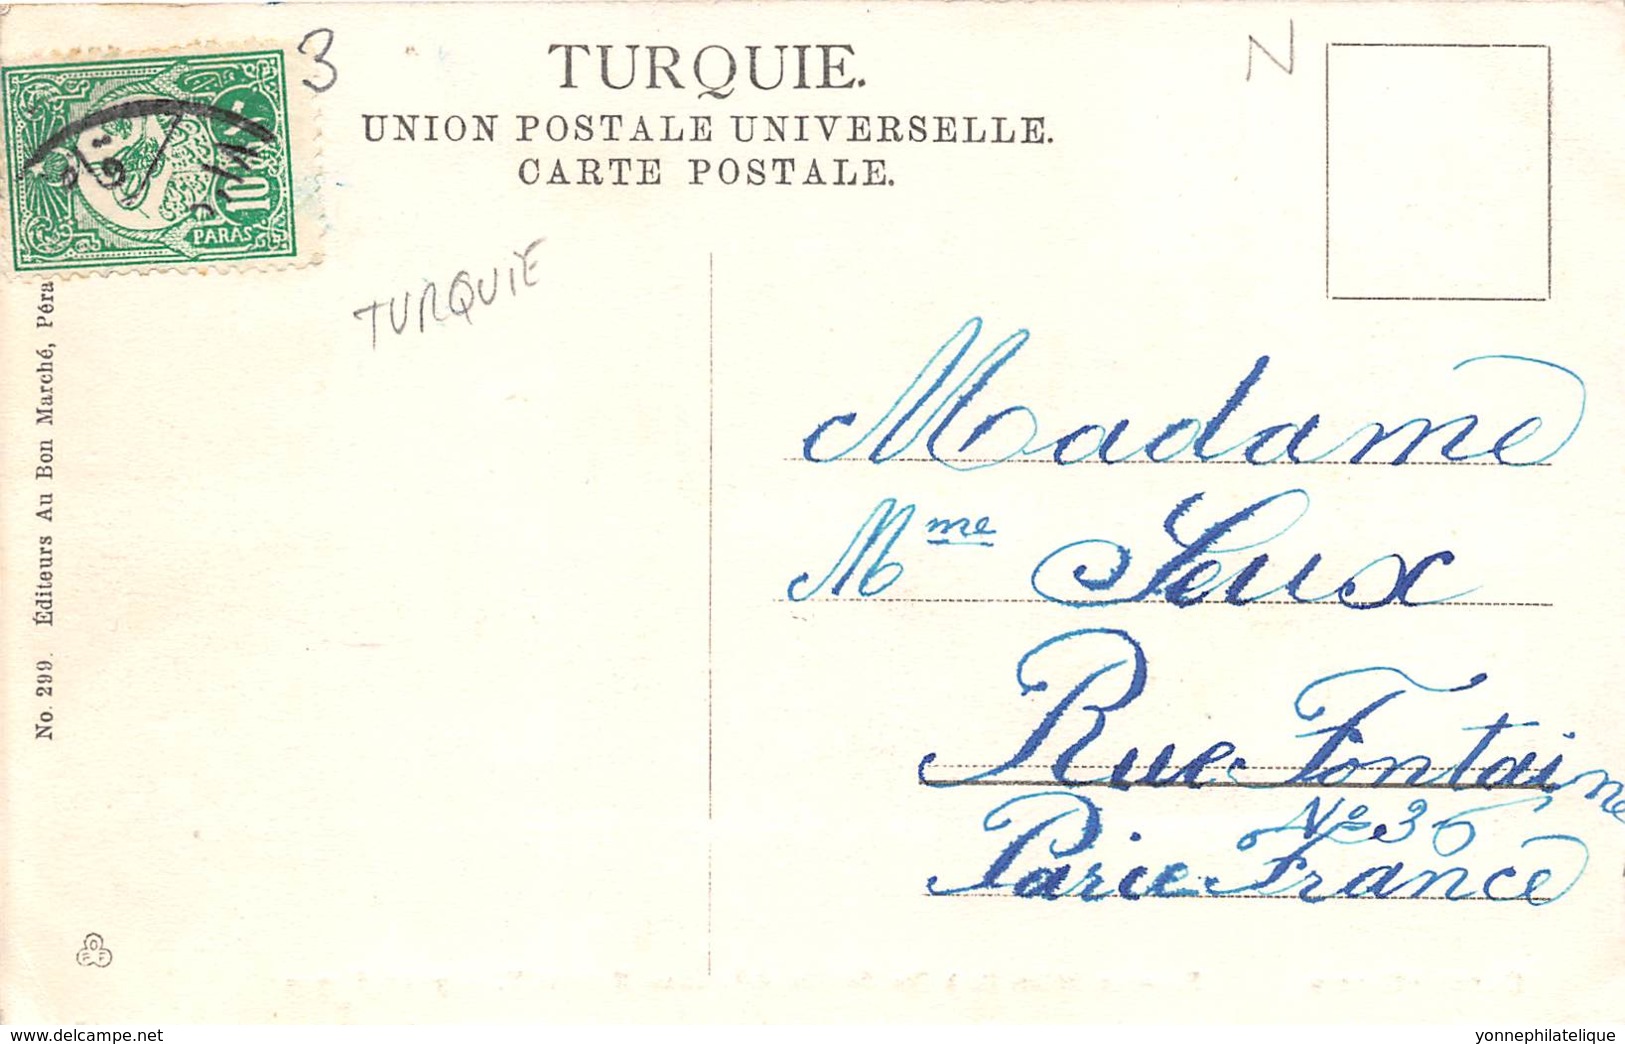 3
N
TURQUIE.
UNION POSTALE UNIVERSELLE.
CARTE POSTALE.
10
PARAS
TURQUIE
No. 299. Éditeurs Au Bon Marché, Péra
Madame
Mme Seux
Rue Fontaine
No 36
Parie France
delcampe.net
yonnephilatelique